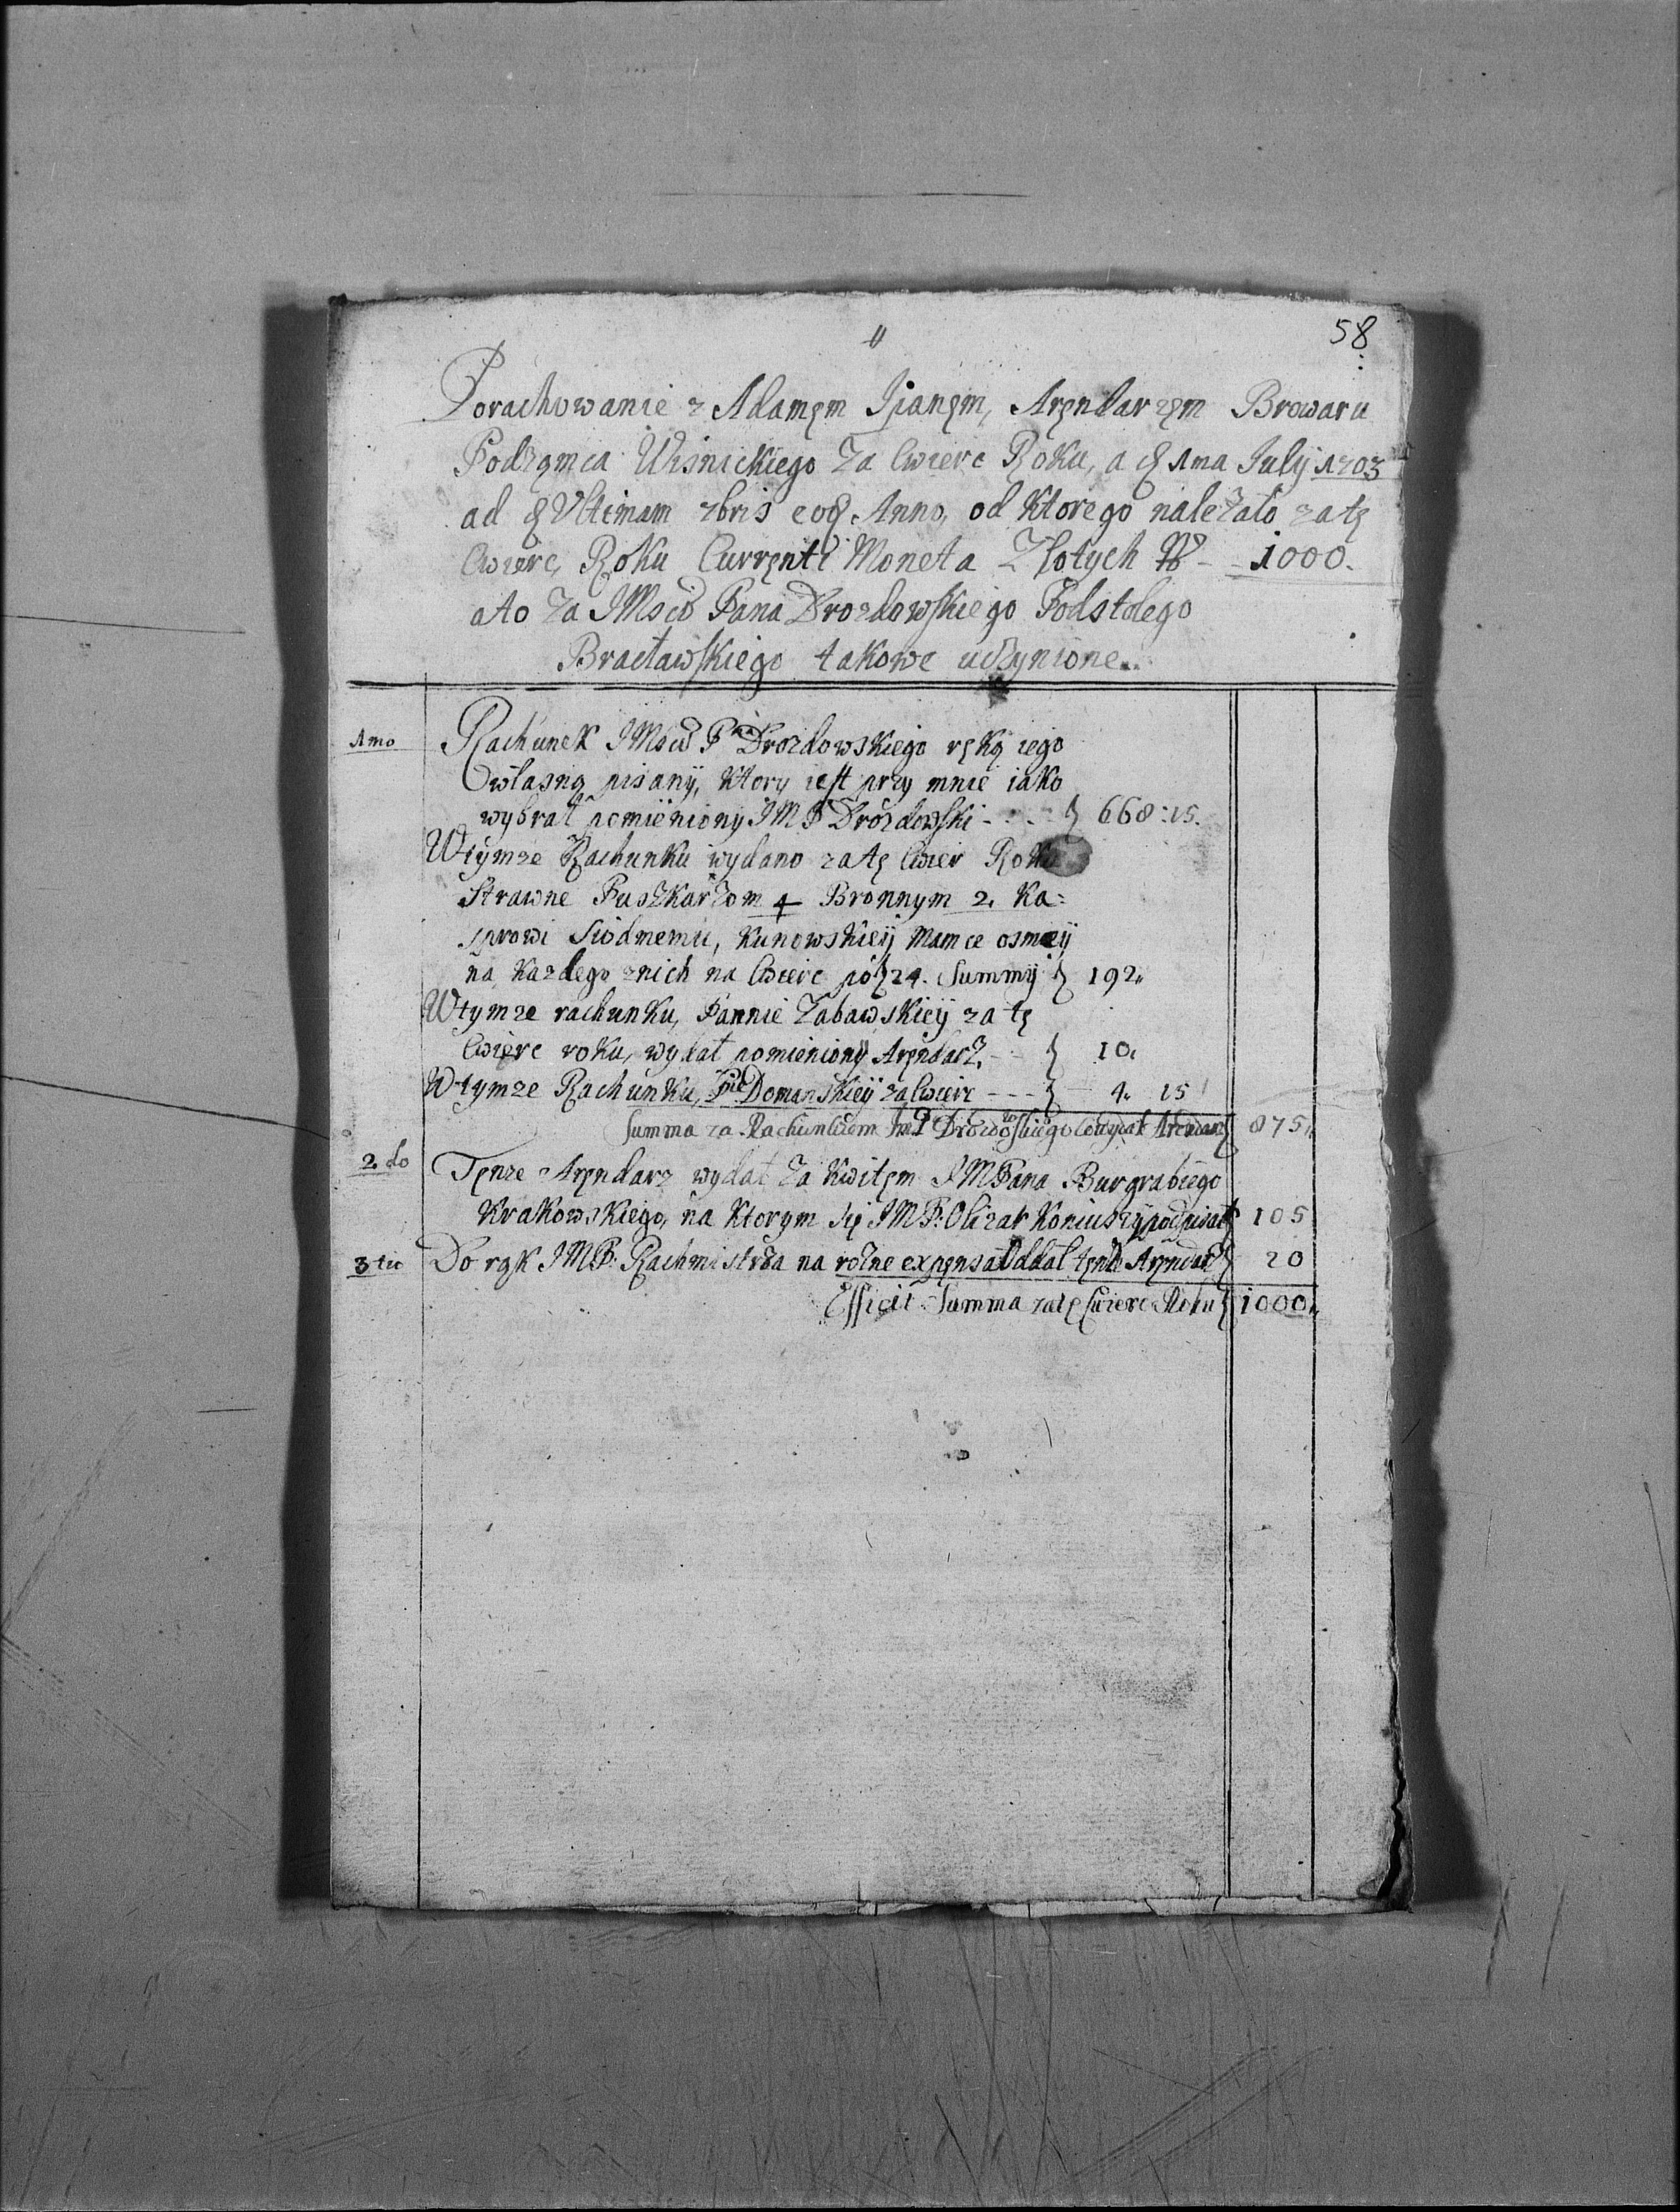 58
Porachowanie z Adamęm Aręndarzęm Browaru
Podzamcza Wisnickiego Za Cwierc Roku, a d 1ma Julij 1703
ad Vltimam 7bris eod Anno, od Ktorego należało za tę
Cwierc Roku Currenti Moneta Złotych 1000.
a to Za JMsci Pana Drozdowskiego Podstolego
Bracławskiego takowe uczynione..
1mo Rachunek JMsci P Drozdowskiego ręką iego
własną pisanÿ, Ktory iest przy mnie iako
wybrał pomieniony JMP Drozdowski - - - } 668:15.
Wtymze Rachunku wydano za tę Cwier Roku
Strawne Puszkarzom 4 Bronnym 2. Ka=
sprowi Siodmemu, Kunowskieÿ Mamce osmeÿ
na Kazdego znich na Cwierc po 24. Summÿ } 192.
Wtymze rachunku, Pannie Zabawskieÿ za tę
Cwierc roku, wydał pomieniony Aręndarz - } 10.
Wtymze Rachunku, Domanskieÿ za Cwierc - - - } 4. 15
Summa za Rachunkiem Drozdowskiego wydał Aręndarz } 875.
2do Tęnze Aręndarz wydał Za Kwitęm JMPana Burgrabiego
Krakowskiego, na Ktorym się JMP: Olizar Koniuszÿ podpisał } 105
3tio Do rąk JMP: Rachmistrza na rożne expęnsa oddał tęnże Aręndarz } 20
Efficit Summa za tę Cwierc Roku } 1000.